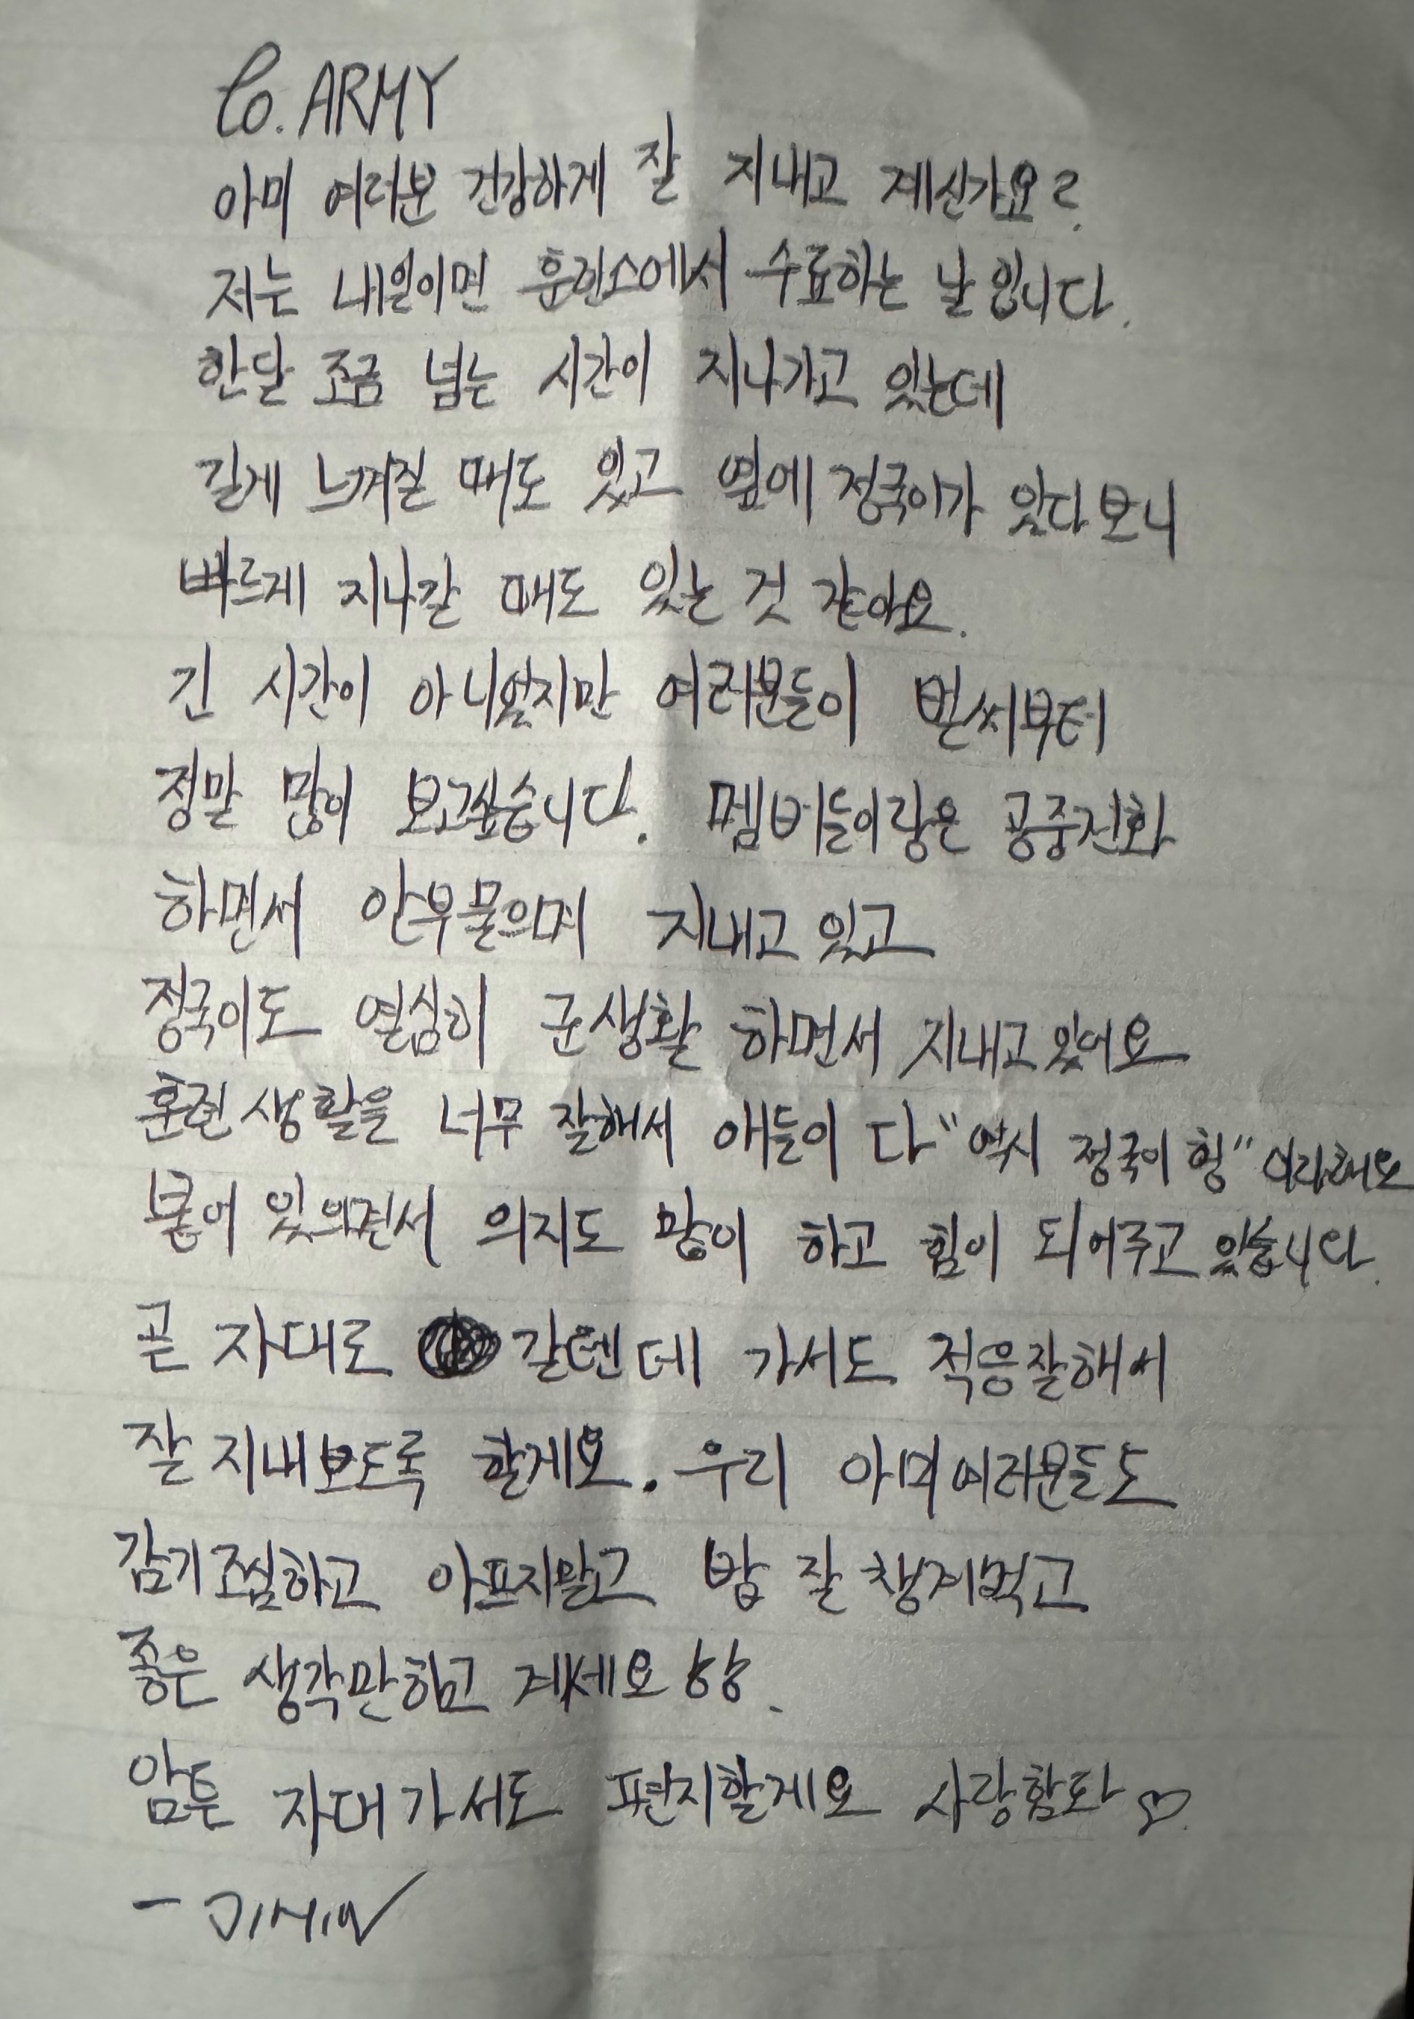 To. ARMY
아미 여러분 건강하게 잘 지내고 계신가요?
저는 내일이면 훈련소에서 수료하는 날 입니다.
한달 조금 넘는 시간이 지나가고 있는데
길게 느껴질 때도 있고 옆에 정국이가 있다보니
빠르게 지나갈 때도 있는 것 같아요.
긴 시간이 아니었지만 여러분들이 벌써부터
정말 많이 보고싶습니다. 멤버들이랑은 공중전화
하면서 안부 물으며 지내고 있고
정국이도 열심히 군생활 하면서 지내고 있어요
훈련 생활을 너무 잘해서 애들이 다 "역시 정국이 형" 이라해요
붙어 있으면서 의지도 많이 하고 힘이 되어주고 있습니다.
곧 자대로 갈텐데 가서도 적응잘해서
잘 지내보도록 할게요. 우리 아미여러분들도
감기조심하고 아프지말고 밥 잘 챙겨먹고
좋은 생각만하고 계세요 핳핳.
암튼 자대가서도 편지할게요 사랑함돠♡.
- JIMIN